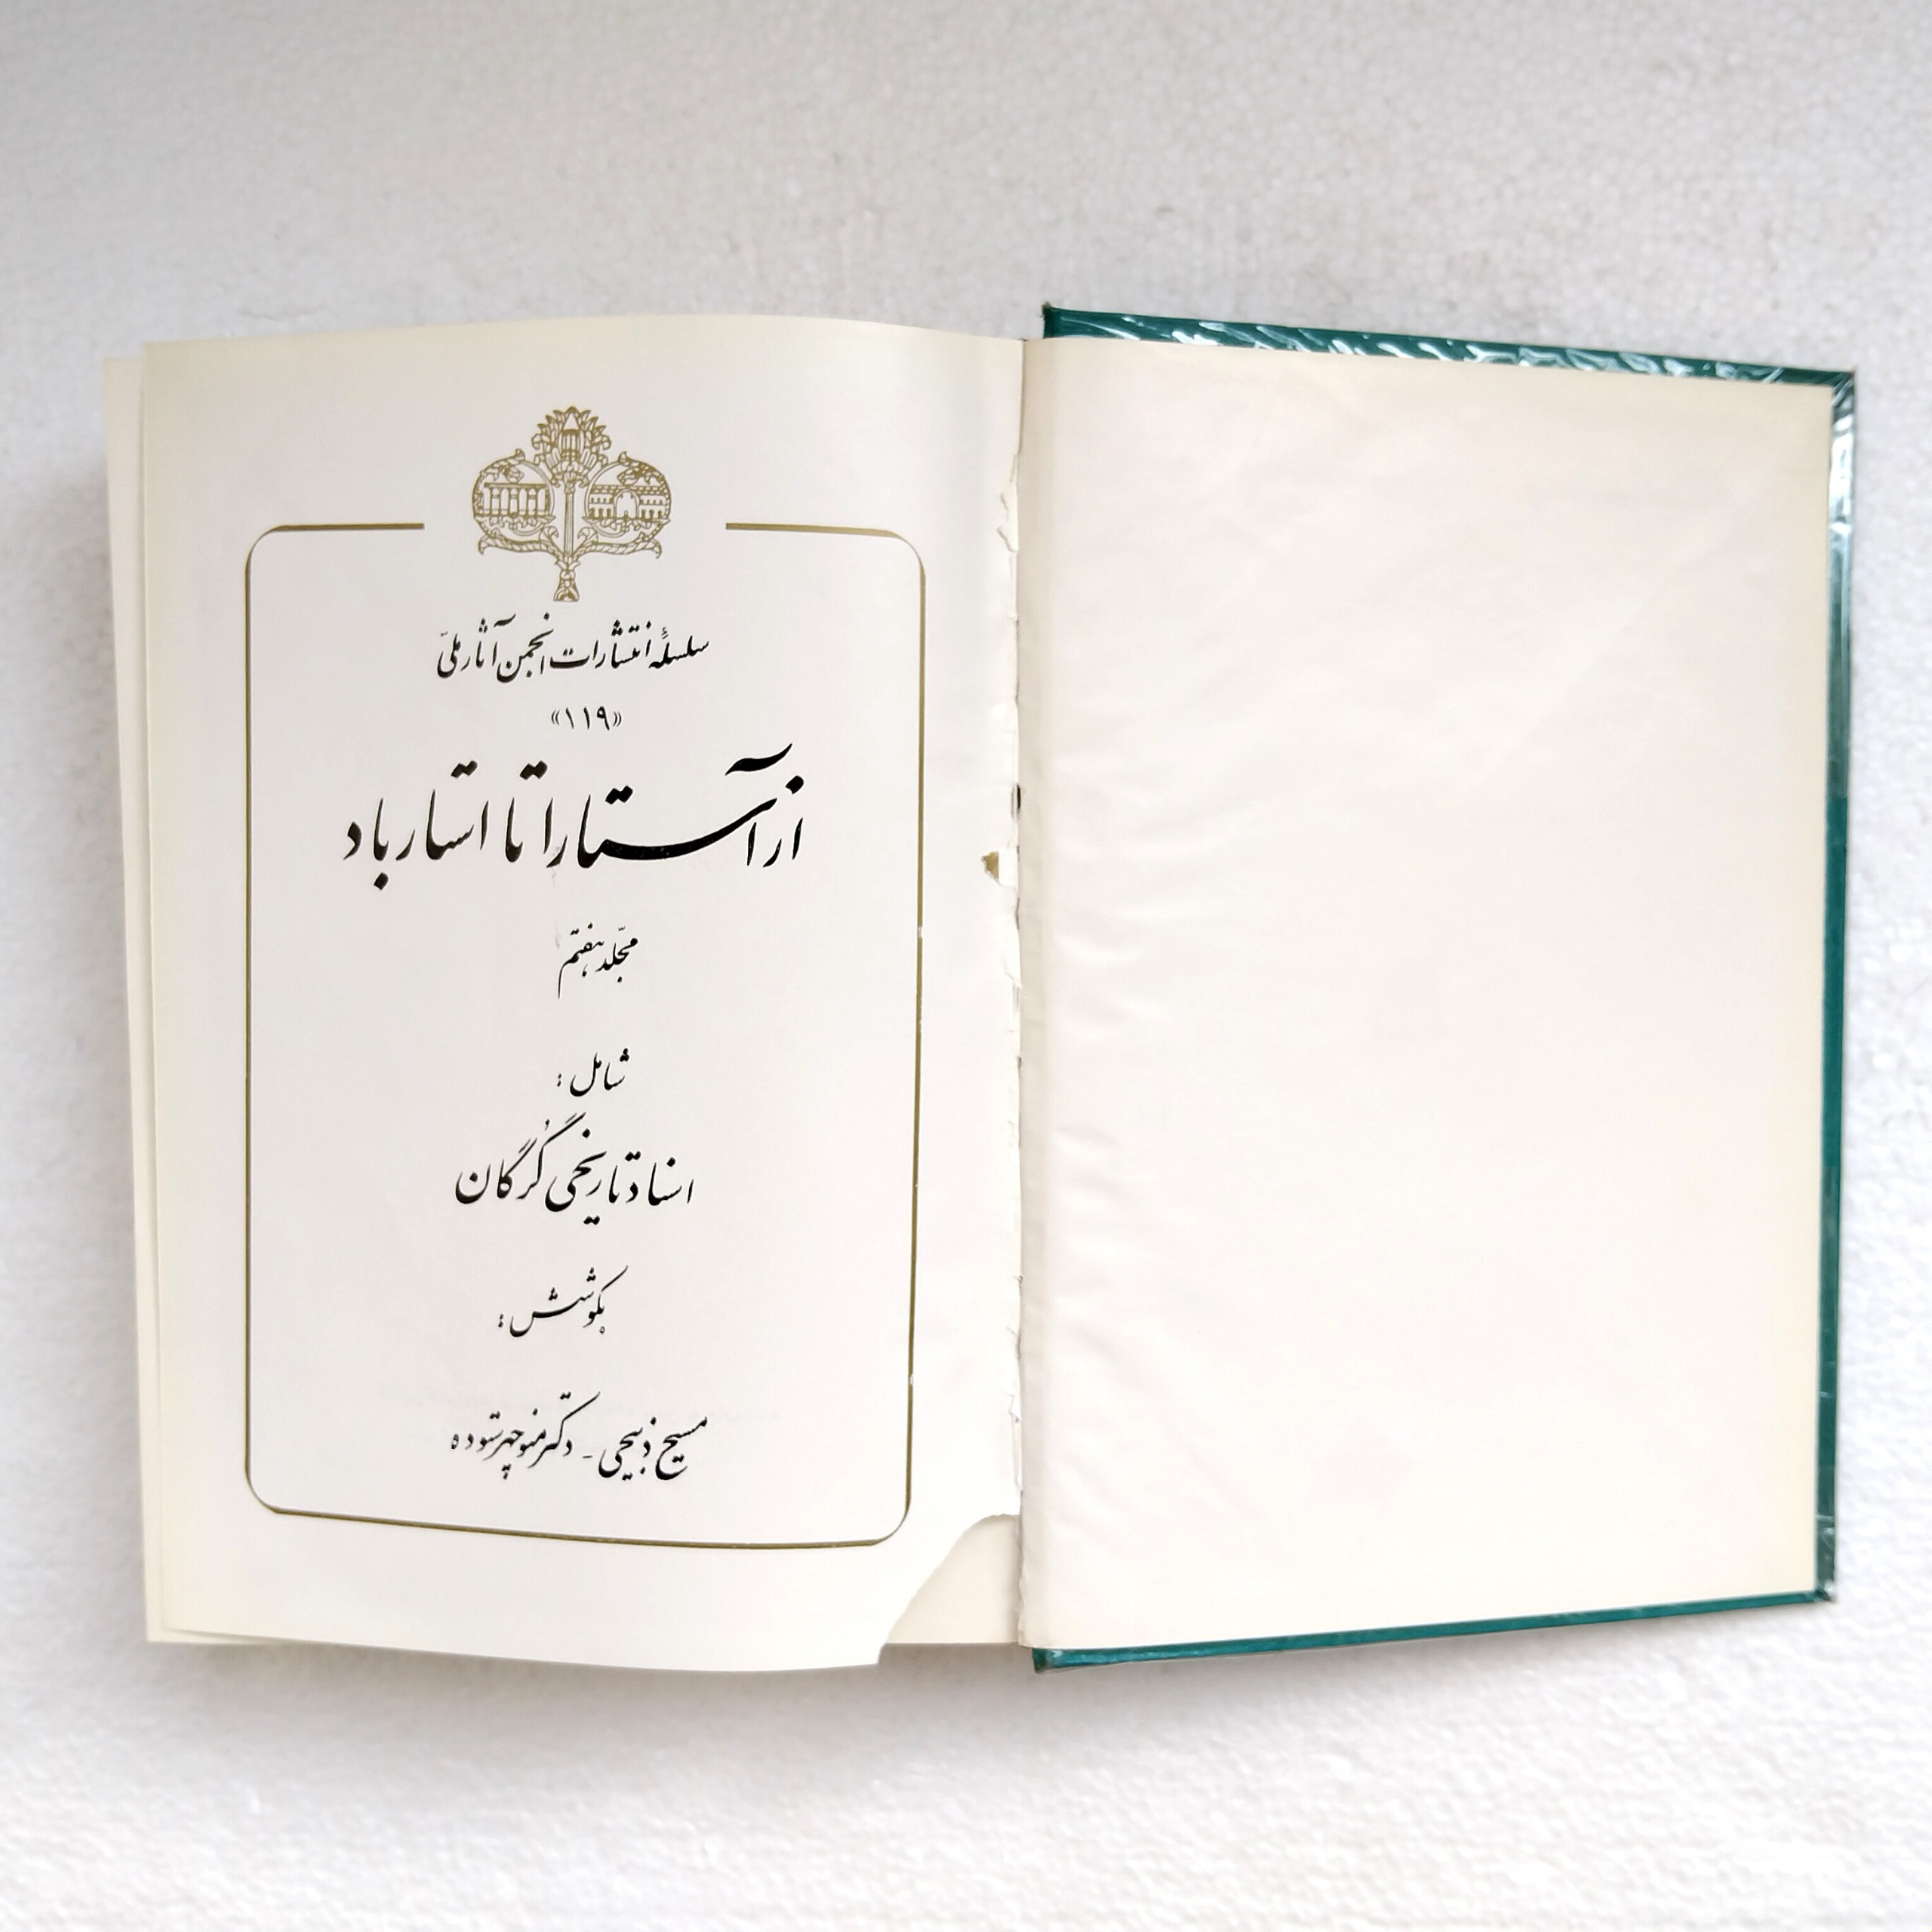 سلسلهٔ انتشارات انجمن آثار ملّی
«۱۱۹»
از آستارا تا استارباد
مجلّد هفتم
شامل:
اسناد تاریخی گُرگان
بکوشش:
مسیح ذبیحی - دکتر منوچهر ستوده